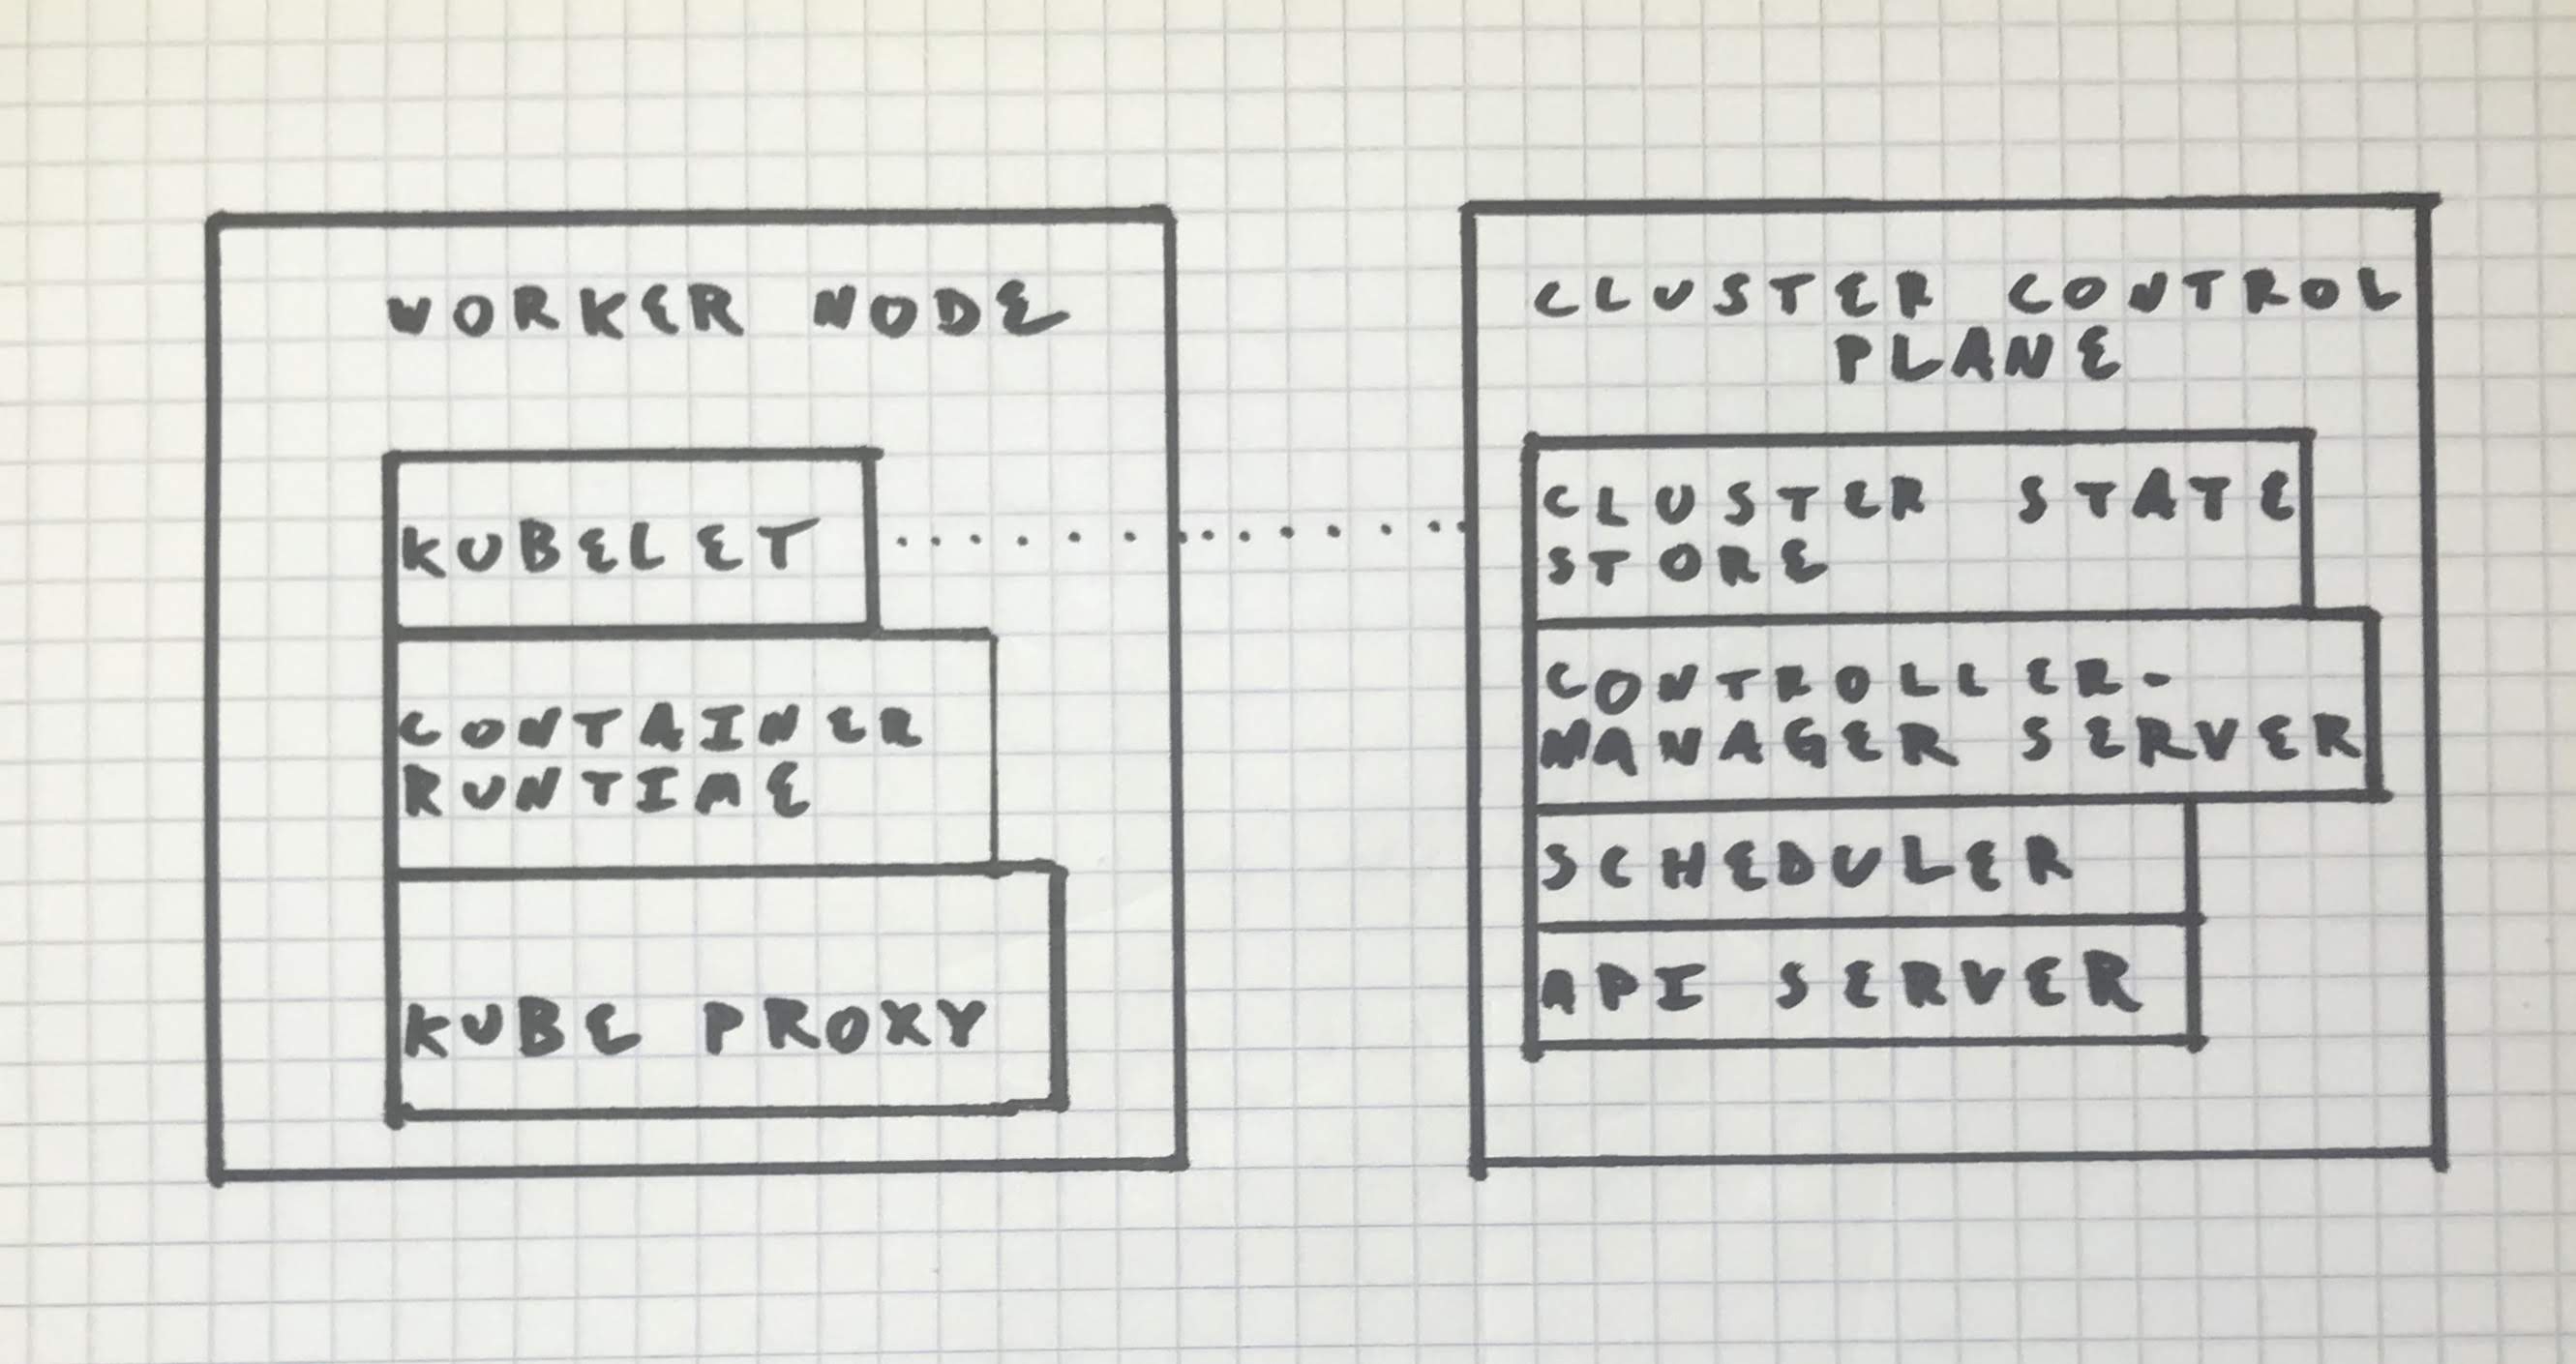 WORKER NODE
KUBELET
CONTAINER
RUNTIME
KUBE PROXY
CLUSTER CONTROL
PLANE
CLUSTER STATE
STORE
CONTROLLER-
MANAGER SERVER
SCHEDULER
API SERVER